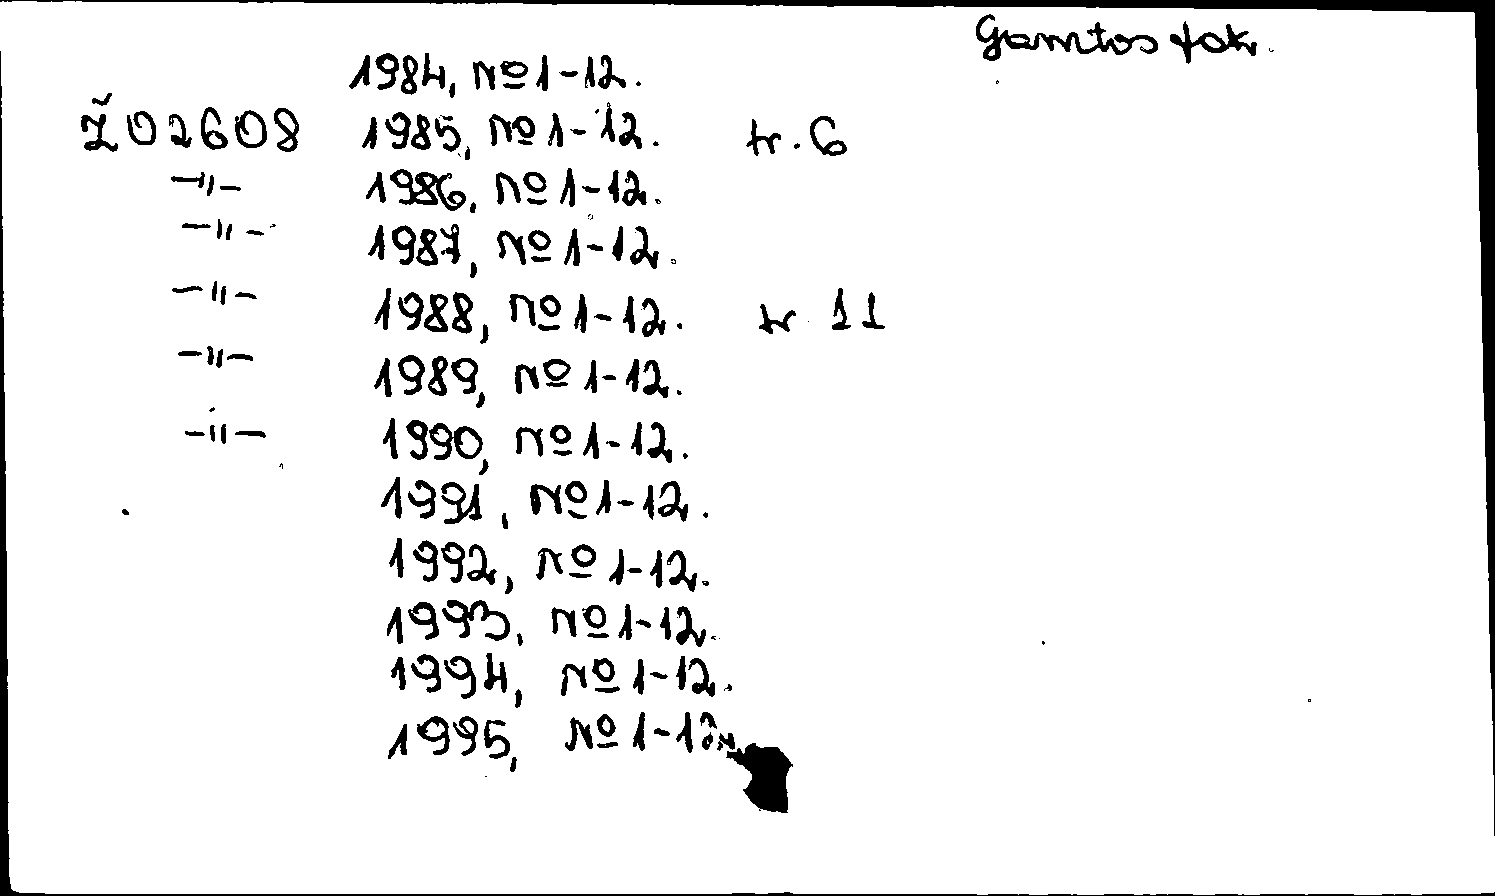 Gamtos fak.
1984, №1-12.
Ž02608 1985, №1-12. tr. 6
-"- 1986, №1-12.
-"- 1987, №1-12.
-"- 1988, №1-12. tr 11
-"- 1989, №1-12.
-"- 1990, №1-12.
1991, №1-12.
1992, №1-12.
1993, №1-12.
1994, №1-12.
1995, №1-12